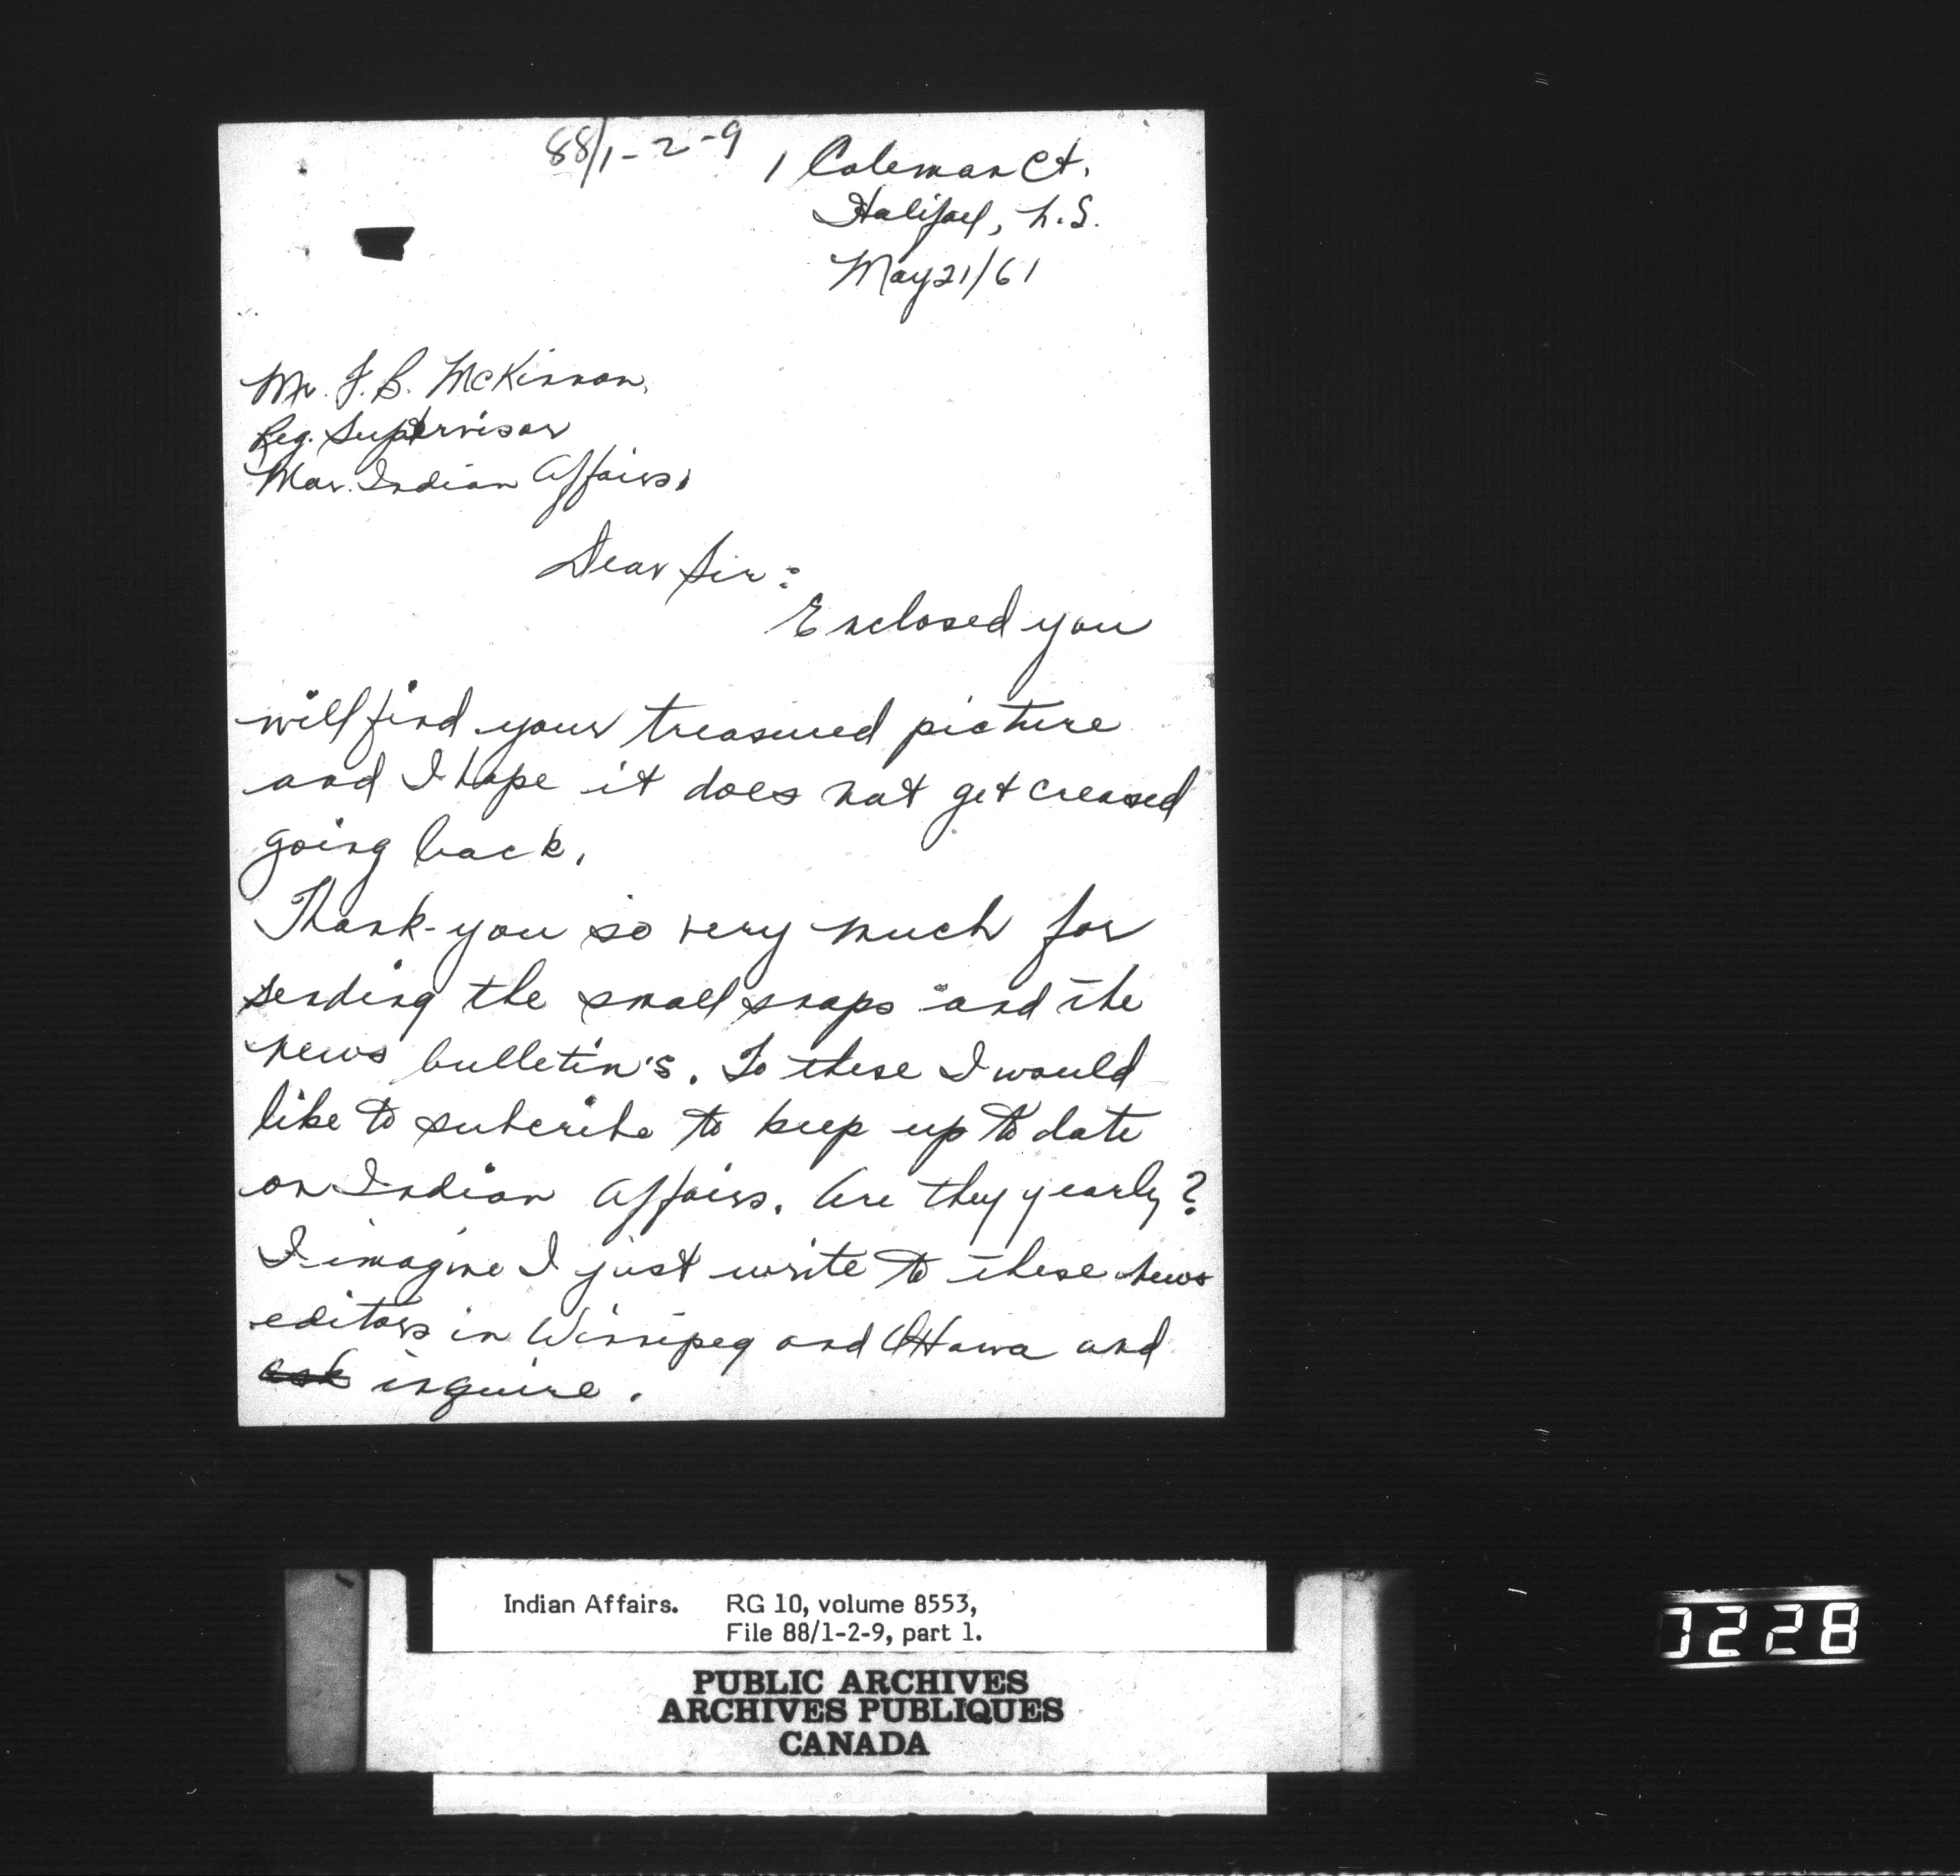 88/1-2-9
1 Coleman Ct.
Halifax, N.S.
May 21/61
Mr. F. B. McKinnon,
Reg. Supervisor
Mar. Indian Affairs.
Dear Sir:
Enclosed you
will find your treasured picture
and I hope it does not get creased
going back.
Thank-you so very much for
sending the small snaps and the
news bulletin's. To these I would
like to subcribe to keep up to date
on Indian Affairs. Are they yearly?
I imagine I just write to these news
editors in Winnipeg and Ottawa and
ask inquire.
Indian Affairs. RG 10, volume 8553,
File 88/1-2-9, part 1.
PUBLIC ARCHIVES
ARCHIVES PUBLIQUES
CANADA
0228